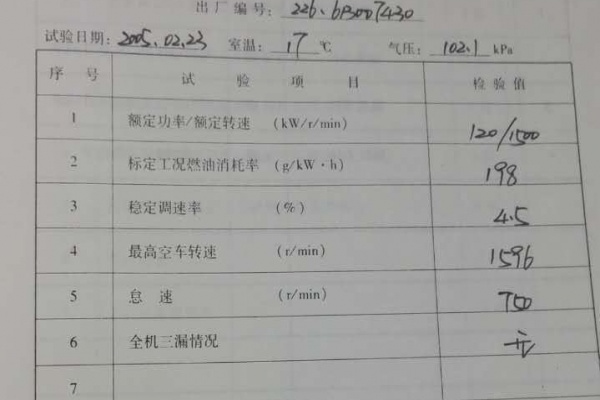 出厂编号: 226.6B3007430
试验日期: 2005.02.23 室温: 17 ℃ 气压: 102.1 kPa
序号 试验项目 检验值
1 额定功率/额定转速 (kW/r/min) 120/1500
2 标定工况燃油消耗率 (g/kW·h) 198
3 稳定调速率 (%) 4.5
4 最高空车转速 (r/min) 1596
5 怠速 (r/min) 750
6 全机三漏情况 无
7